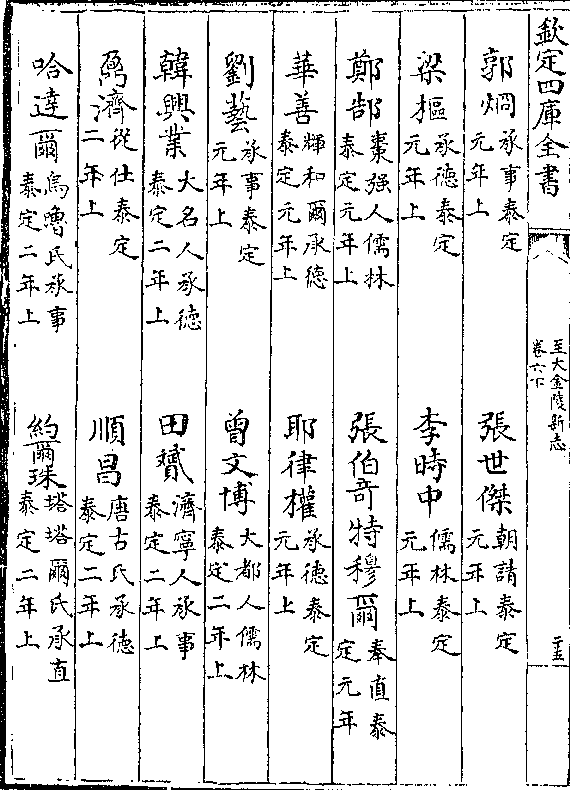 欽定四庫全書 至大金陵新志 卷六下
郭烱 承事泰定元年上 張世傑 朝請泰定元年上
梁樞 承德泰定元年上 李時中 儒林泰定元年上
鄭郜 棗强人儒林泰定元年上 張伯奇特穆爾 奉直泰定元年
華善 輝和爾承德泰定元年上 耶律權 承德泰定元年上
劉藝 承事泰定元年上 曾文博 大都人儒林泰定二年上
韓興業 大名人承德泰定二年上 田贇 濟寧人承事泰定二年上
鼐濟 從仕泰定二年上 順昌 唐古氏承德泰定二年上
哈達爾 烏魯氏承事泰定二年上 約爾珠 塔塔爾氏承直泰定二年上